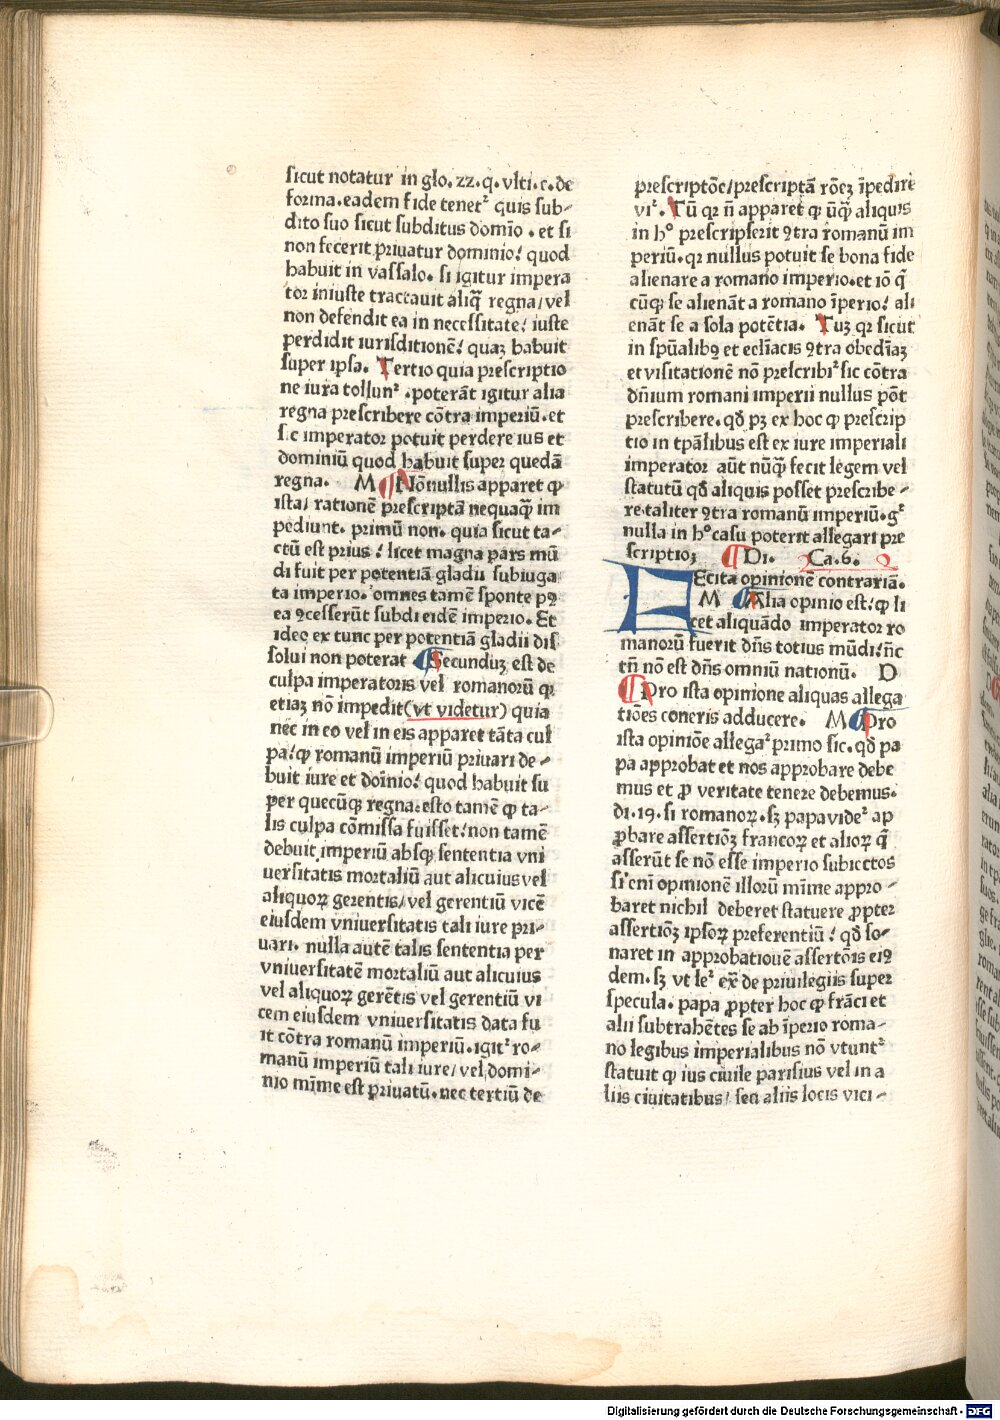 sicut notatur in glo. 22. q. vlti. c. de
forma. eadem fide tenetᷣ quis sub⸗
dito suo sicut subditus domino . et si
non fecerit priuatur dominio! quod
habuit in vassalo. si igitur impera
tor iniuste tractauit aliq̄ regna/ vel
non defendit ea in necessitate! iuste
perdidit iurisditionē! quaꝫ habuit
super ipsa. Tertio quia prescriptio
ne iura tollunᷣ. poterāt igitur alia
regna prescribere cōtra imperiū. et
sic imperator potuit perdere ius et
dominiū quod habuit super quedā
regna. M ¶ Nōnullis apparet ꝙ
ista/ rationē prescriptā nequaq̄ im
pediunt. primū non. quia sicut ta⸗
ctū est prius! licet magna pars mū
di fuit per potentiā gladii subiuga
ta imperio. omnes tamē sponte pꝰ
ea ꝯcesserūt subdi eidē imperio. Et
ideo ex tunc per potentiā gladii dis
solui non poterat ¶ Secunduꝫ est de
culpa imperatoris vel romanorū ꝙ
etiaꝫ nō impedit (vt videtur) quia
nec in eo vel in eis apparet tāta cul
pa! ꝙ romanū imperiū priuari de⸗
buit iure et doīnio! quod habuit su
per quecūqꝫ regna. esto tamē ꝙ ta⸗
lis culpa cōmissa fuisset! non tamē
debuit imperiū absqꝫ sententia vni
uersitatis mortaliū aut alicuius vel
aliquoꝝ gerentis/ vel gerentiū vicē
eiusdem vniuersitatis tali iure pri⸗
uari. nulla autē talis sententia per
vniuersitatē mortaliū aut alicuius
vel aliquoꝝ gerētis vel gerentiū vi
cem eiusdem vniuersitatis data fu
it cōtra romanū imperiū. igitᷣ ro⸗
manū imperiū tali iure/ vel domi⸗
nio mīme est priuatū. nec tertiū de
prescriptōe/ prescriptā rōeꝫ īpedire
viᷣ. Tū qꝛ ñ apparet ꝙ ūq̄ aliquis
in hᵒ prescripserit ꝯtra romanū im
periū. qꝛ nullus potuit se bona fide
alienare a romano imperio. et iō q̄
cūqꝫ se alienāt a romano īperio! ali
enāt se a sola potētia. Tuꝫ qꝛ sicut
in spūalibꝰ et eccl̄iacis ꝯtra obediāꝫ
et visitationē nō prescribiᷣ sic cōtra
dn̄ium romani imperii nullus pōt
prescribere. qd̄ pꝫ ex hoc ꝙ prescrip
tio in tpālibus est ex iure imperiali
imperator aūt nūq̄ fecit legem vel
statutū qd̄ aliquis posset prescribe⸗
re taliter ꝯtra romanū imperiū. gᷣ
nulla in hᵒ casu poterit allegari pre
scriptioꝫ ¶ Di. Ca. 6.
REcita opinionē contrariā.
M ¶ Alia opinio est! ꝙ li
cet aliquādo imperator ro
manorū fuerit dn̄s totius mūdi! n̄c
tn̄ nō est dn̄s omniū nationū. D
¶ Pro ista opinione aliquas allega
tiōes coneris adducere. M ¶ Pro
ista opiniōe allegaᷣ primo sic. qd̄ pa
pa approbat et nos approbare debe
mus et ꝑ veritate tenere debemus.
di. 19. si romanoꝝ. sꝫ papa videᷣ ap
ꝓbare assertiōꝫ francoꝝ et alioꝝ q̄
asserūt se nō esse imperio subiectos
si eni opinionē illorū mīme appro⸗
baret nichil deberet statuere ꝓpter
assertiōꝫ ipsoꝝ preferentiū! qd̄ so⸗
naret in approbationē assertōis eiꝰ
dem. sꝫ vt leᷣ ex̄ de priuilegiis super
specula. papa ꝓpter hoc ꝙ frāci et
alii subtrahētes se ab īperio roma⸗
no legibus imperialibus nō vtuntᷣ
statuit ꝙ ius ciuile parisius vel in a
liis ciuitatibus/ seu aliis locis vici⸗
Digitalisierung gefördert durch die Deutsche Forschungsgemeinschaft - DFG